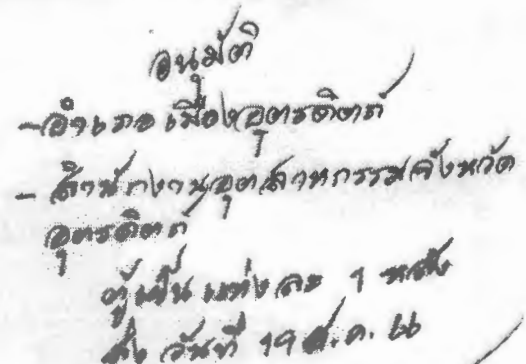 อนุมัติ
- อำเภอเมืองอุตรดิตถ์
- สำนักงานอุตสาหกรรมจังหวัด
อุตรดิตถ์
ตู้เย็น แห่งละ 1 หลัง
ส่ง วันที่ 19 ธ.ค. 66